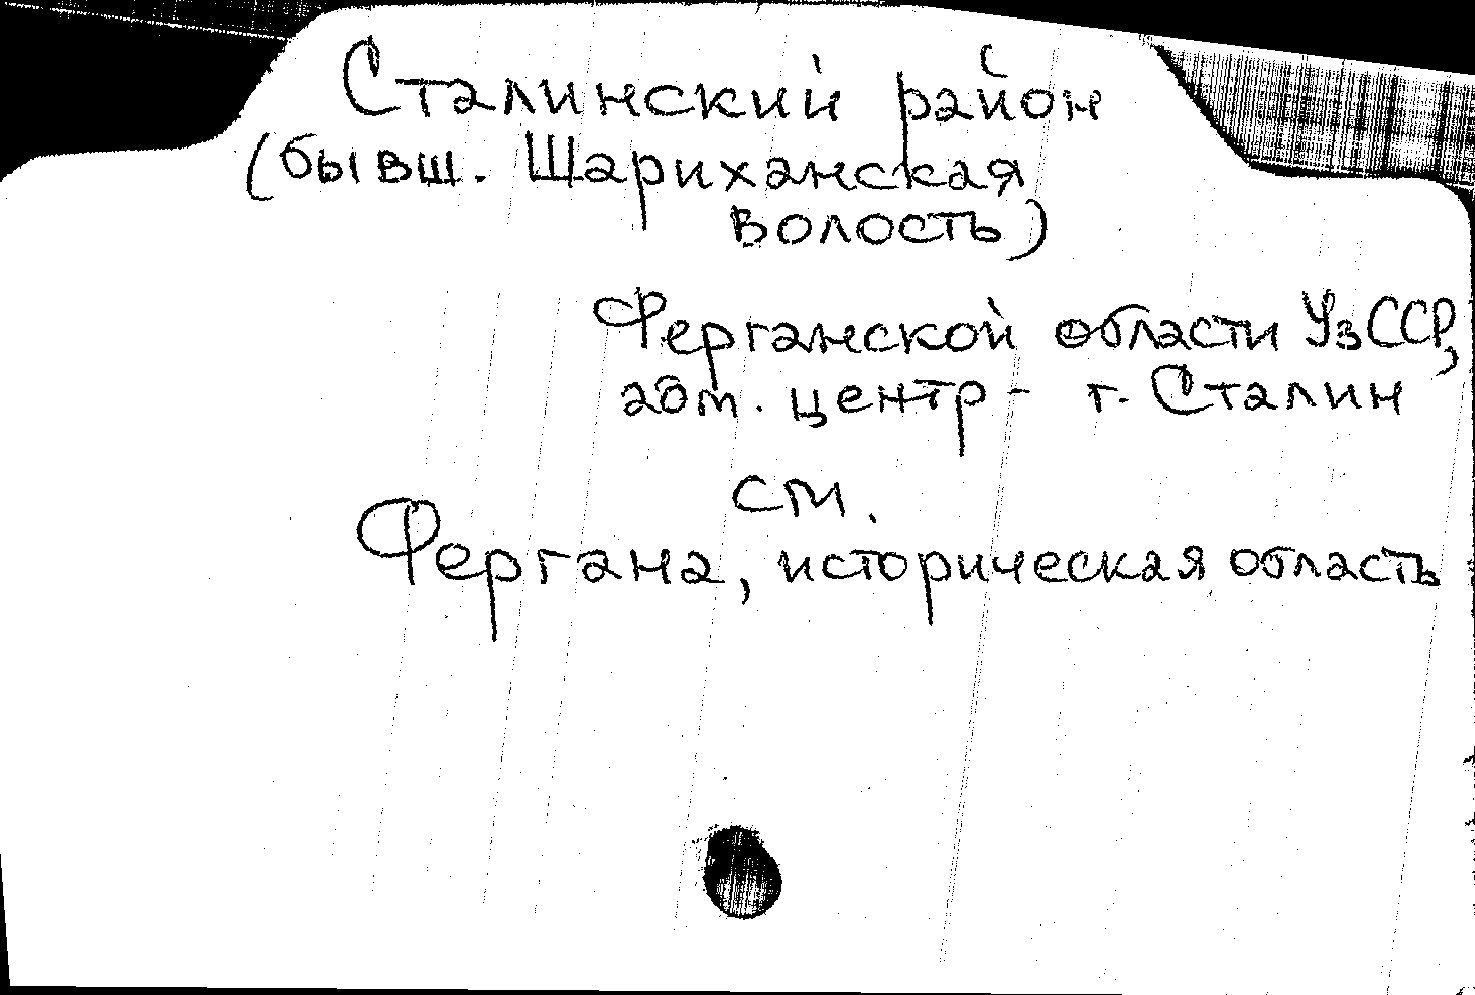 Сталинский район
(бывш. Шариханская
волость)
Ферганской области УзССР,
адм. центр - г. Сталин
см.
Фергана, историческая область